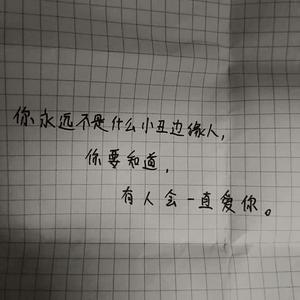 你永远不是什么小丑边缘人,
你要知道,
有人会一直爱你。